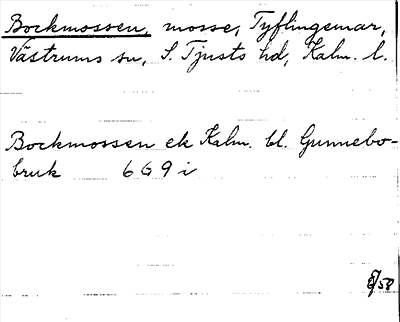 Bockmossen, mosse, Tyflingemar,
Västrums sn, S. Tjusts hd, Kalm. l.
Bockmossen ek Kalm. bl. Gunnebo-
bruk 6G9i
/58